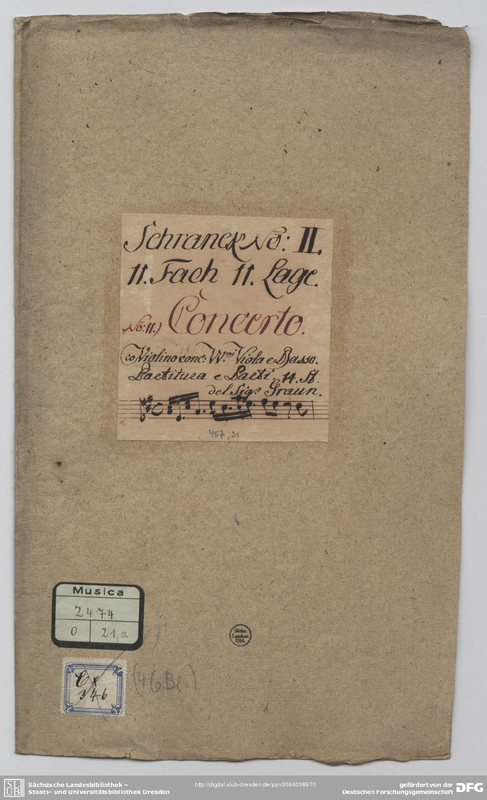 Schranck No: II.
11. Fach 11. Lage.
No: 11.) Concerto.
co Violino conc: VV.ni Viola e Basso.
Partitura e Parti. 14. St.
del Sig.r Graun.
457, 31
Musica
2474
O 21,a
Cx
346
Sächs.
Landes-
Bibl.
SLUB
Sächsische Landesbibliothek –
Staats- und Universitätsbibliothek Dresden
gefördert von der
Deutschen Forschungsgemeinschaft DFG